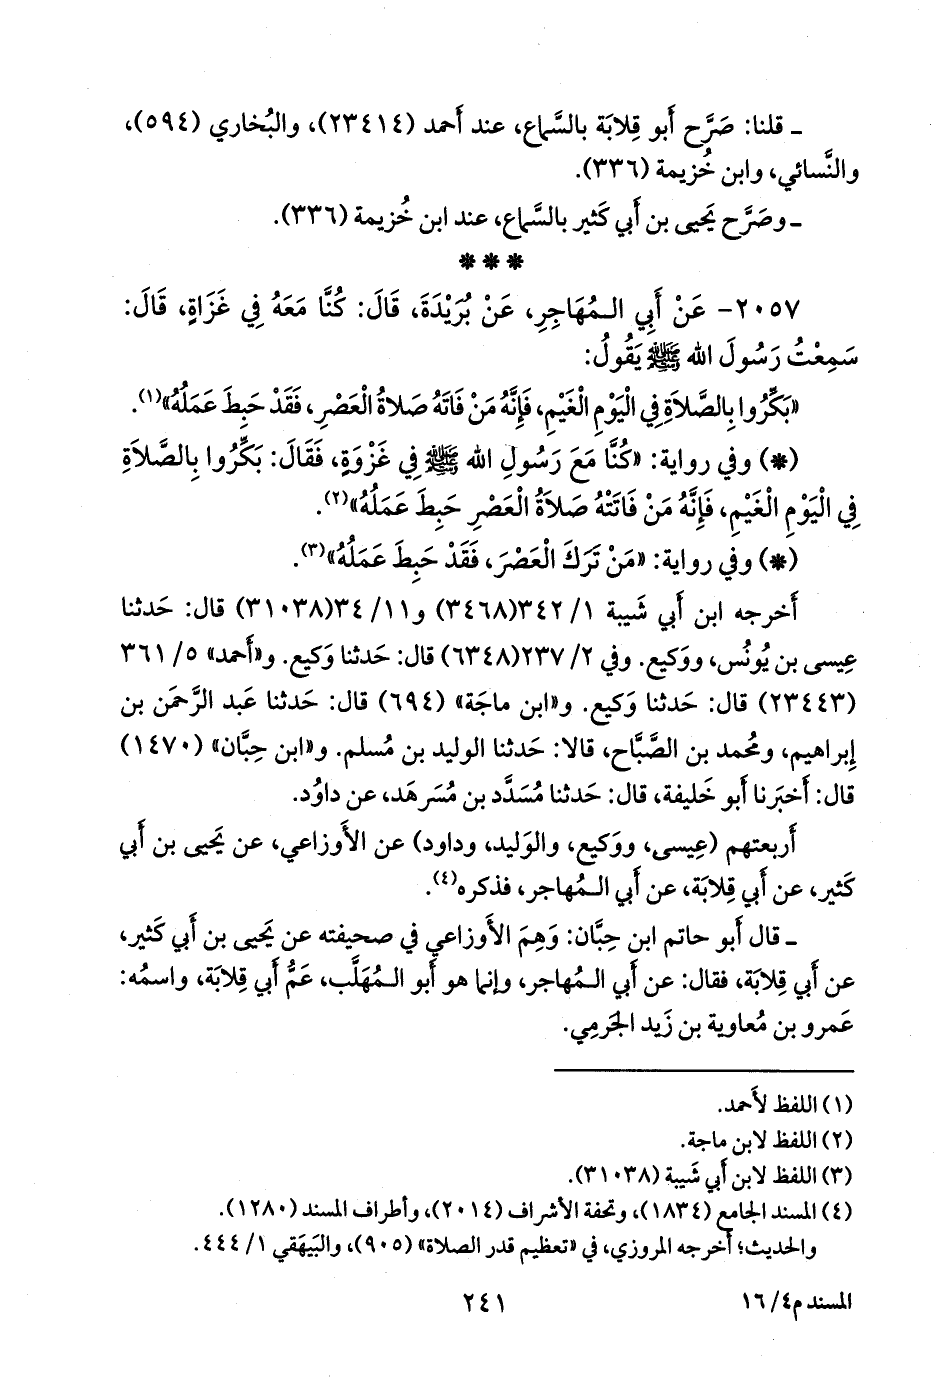 ـ قلنا: صَرَّح أَبو قِلابَة بالسَّماع، عند أَحمد (٢٣٤١٤)، والبُخاري (٥٩٤)،
والنَّسائي، وابن خُزيمة (٣٣٦).
ـ وصَرَّح يَحيى بن أَبي كَثير بالسَّماع، عند ابن خُزيمة (٣٣٦).
* * *
٢٠٥٧- عَنْ أَبِي الـمُهَاجِرِ، عَنْ بُرَيْدَةَ، قَالَ: كُنَّا مَعَهُ فِي غَزَاةٍ، قَالَ:
سَمِعْتُ رَسُولَ الله ﷺ يَقُولُ:
«بَكِّرُوا بِالصَّلاَةِ فِي الْيَوْمِ الْغَيْمِ، فَإِنَّهُ مَنْ فَاتَهُ صَلاةُ الْعَصْرِ، فَقَدْ حَبِطَ عَمَلُهُ»(١).
(*) وفي رواية: «كُنَّا مَعَ رَسُولِ الله ﷺ فِي غَزْوَةٍ، فَقَالَ: بَكِّرُوا بِالصَّلاَةِ
فِي الْيَوْمِ الْغَيْمِ، فَإِنَّهُ مَنْ فَاتَتْهُ صَلاَةُ الْعَصْرِ حَبِطَ عَمَلُهُ»(٢).
(*) وفي رواية: «مَنْ تَرَكَ الْعَصْرَ، فَقَدْ حَبِطَ عَمَلُهُ»(٣).
أَخرجه ابن أَبي شَيبة ١/ ٣٤٢(٣٤٦٨) و١١/ ٣٤(٣١٠٣٨) قال: حَدثنا
عِيسى بن يُونُس، ووَكيع. وفي ٢/ ٢٣٧(٦٣٤٨) قال: حَدثنا وَكيع. و«أَحمد» ٥/ ٣٦١
(٢٣٤٤٣) قال: حَدثنا وَكيع. و«ابن ماجَة» (٦٩٤) قال: حَدثنا عَبد الرَّحمَن بن
إِبراهيم، ومُحمد بن الصَّبَّاح، قالا: حَدثنا الوليد بن مُسلم. و«ابن حِبَّان» (١٤٧٠)
قال: أَخبَرنا أَبو خَليفة، قال: حَدثنا مُسَدَّد بن مُسَرهَد، عن داوُد.
أَربعتهم (عِيسى، ووَكيع، والوَليد، وداود) عن الأَوزاعي، عن يَحيى بن أَبي
كَثير، عن أَبي قِلابَة، عن أَبي الـمُهاجر، فذكره(٤).
ـ قال أَبو حاتم ابن حِبَّان: وَهِمَ الأَوزاعي في صحيفته عن يَحيى بن أَبي كَثير،
عن أَبي قِلابَة، فقال: عن أَبي الـمُهاجر، وإِنما هو أَبو الـمُهَلَّب، عَمُّ أَبي قِلابَة، واسمُه:
عَمرو بن مُعاوية بن زَيد الجَرمِي.
(١) اللفظ لأَحمد.
(٢) اللفظ لابن ماجة.
(٣) اللفظ لابن أَبي شَيبة (٣١٠٣٨).
(٤) المسند الجامع (١٨٣٤)، وتحفة الأشراف (٢٠١٤)، وأطراف المسند (١٢٨٠).
والحديث؛ أَخرجه المروزي، في «تعظيم قدر الصلاة» (٩٠٥)، والبَيهَقي ١/ ٤٤٤.
المسند م٤/ ١٦
٢٤١